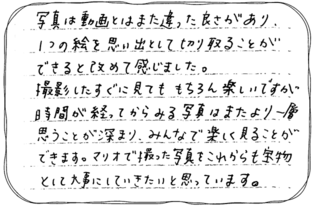 写真は動画とはまた違った良さがあり、
1つの絵を思い出として切り取ることが
できると改めて感じました。
撮影したすぐに見ても もちろん楽しいですが
時間が経ってからみる写真はまたより一層
思うことが深まり、みんなで楽しく見ることが
できます。マリオで撮った写真をこれからも宝物
として大事にしていきたいと思っています。